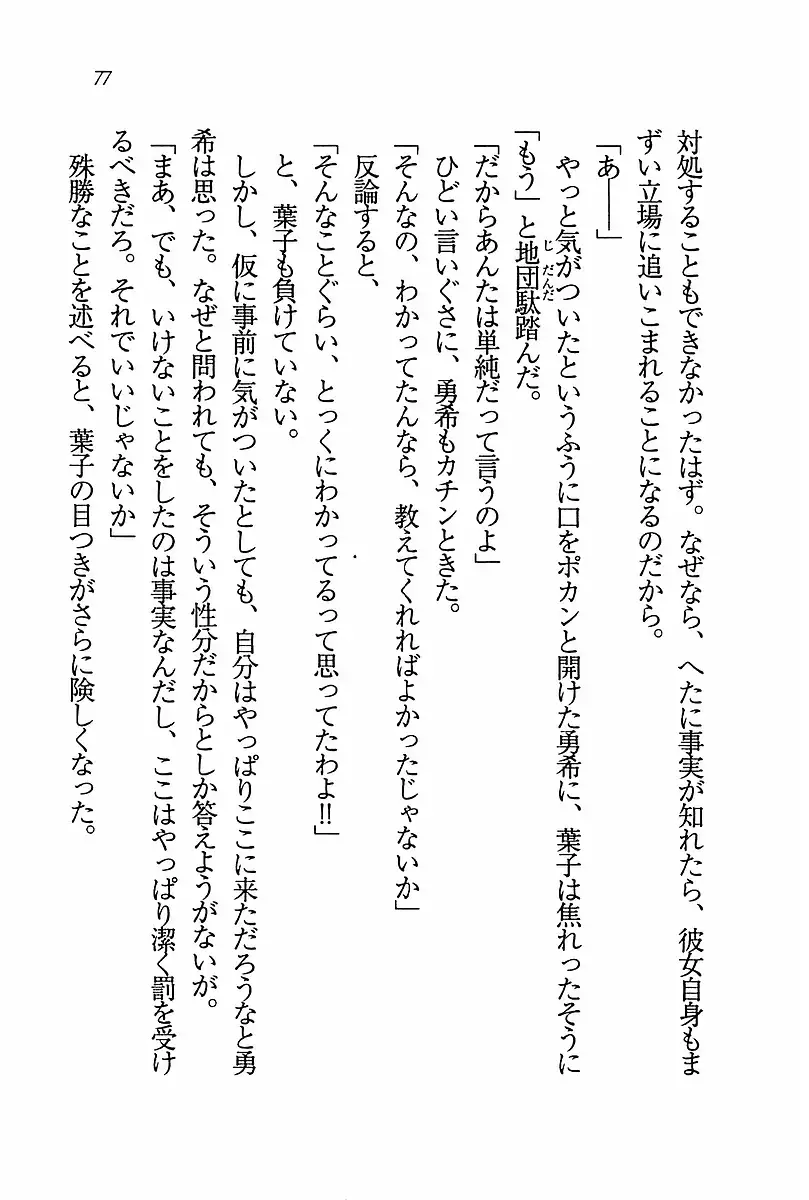 77
対処することもできなかったはず。なぜなら、へたに事実が知れたら、彼女自身もま
ずい立場に追いこまれることになるのだから。
「あ――」
やっと気がついたというふうに口をポカンと開けた勇希に、葉子は焦れったそうに
「もう」と地団駄踏んだ。
じだんだ
「だからあんたは単純だって言うのよ」
ひどい言いぐさに、勇希もカチンときた。
「そんなの、わかってたんなら、教えてくれればよかったじゃないか」
反論すると、
「そんなことぐらい、とっくにわかってるって思ってたわよ!!」
と、葉子も負けていない。
しかし、仮に事前に気がついたとしても、自分はやっぱりここに来ただろうなと勇
希は思った。なぜと問われても、そういう性分だからとしか答えようがないが。
「まあ、でも、いけないことをしたのは事実なんだし、ここはやっぱり潔く罰を受け
るべきだろ。それでいいじゃないか」
殊勝なことを述べると、葉子の目つきがさらに険しくなった。